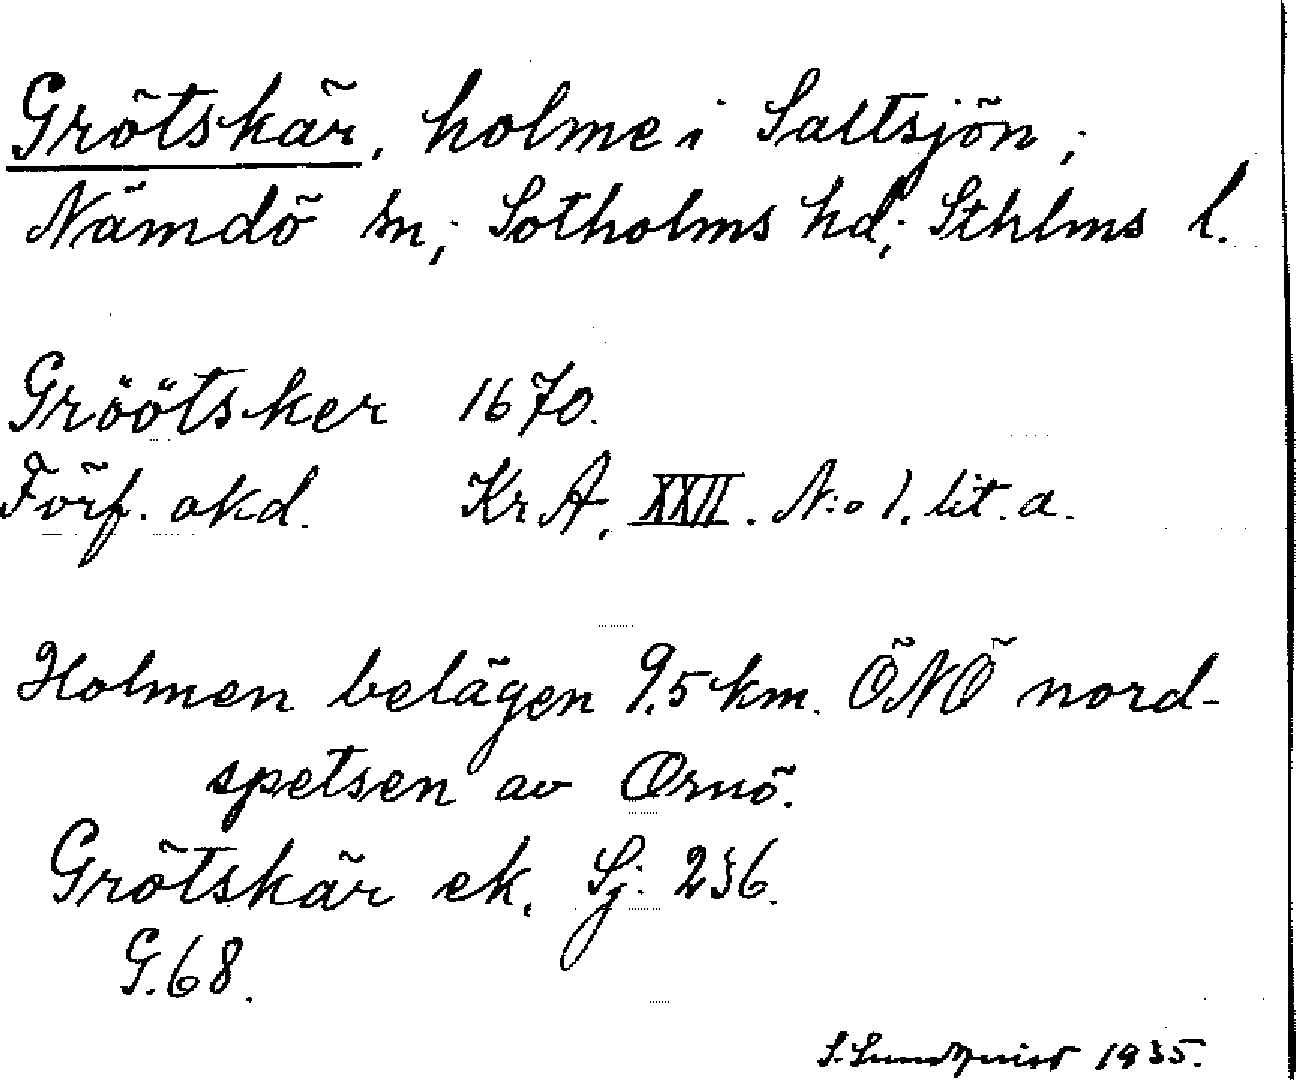 Grötskär, holme i Saltsjön;
Nämdö sn; Sotholms hd; Sthlms l.
Gröötsker 1670.
Förf. okd. KrA, XXII. N:o 1. lit. a.
Holmen belägen 9,5 km. ÖNÖ nord-
spetsen av Ornö.
Grötskär ek. Sj. 236.
G.68.
S. Lundquist 1935.